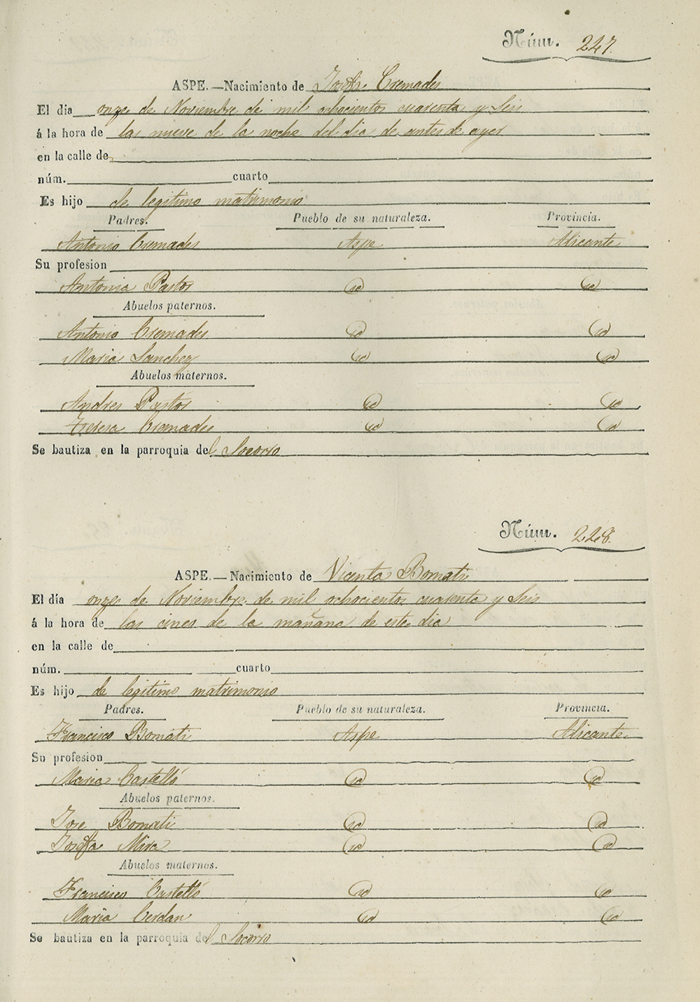 Núm. 227
ASPE.—Nacimiento de Josefa Cremades
El dia onze de Noviembre de mil ochocientos cuarenta y Seis
á la hora de las nueve de la noche del dia de antes de ayer
en la calle de
núm. cuarto
Es hijo de legitimo matrimonio
Padres. Pueblo de su naturaleza. Provincia.
Antonio Cremades Aspe Alicante
Su profesion
Antonia Pastor
Abuelos paternos.
Antonio Cremades
Maria Sanchez
Abuelos maternos.
Andres Pastor
Teresa Cremades
Se bautiza en la parroquia del Socorro
Núm. 228.
ASPE.—Nacimiento de Vicenta Bomati
El día onze de Noviembre de mil ochocientos cuarenta y Seis
á la hora de las cinco de la mañana de este dia
en la calle de
núm. cuarto
Es hijo de legitimo matrimonio
Padres. Pueblo de su naturaleza. Provincia.
Francisco Bomati Aspe Alicante
Su profesion
Maria Castelló
Abuelos paternos.
Jose Bomati
Josefa Mira
Abuelos maternos.
Francisco Castelló
Maria Cerdan
Se bautiza en la parroquia del Socorro